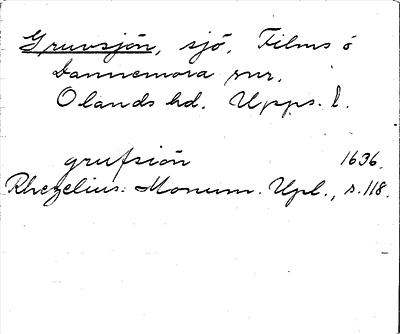 Gruvsjön, sjö, Films o
Dannemora snr.
Olands hd. Upps. l.
grufsiön 1636.
Rhezelius: Monum. Upl., s. 118.